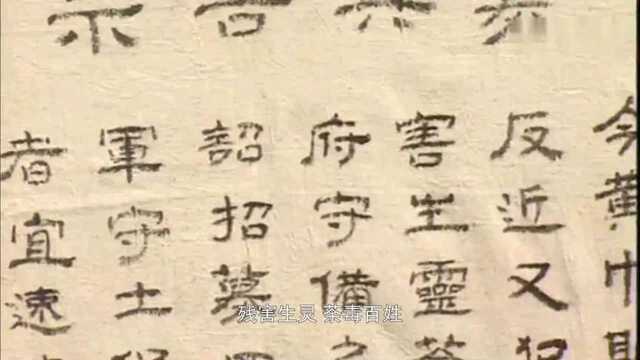 告示
今黃巾
反近又
害生靈
府守備
詔招募
軍守土
者宜速
残害生灵 荼毒百姓